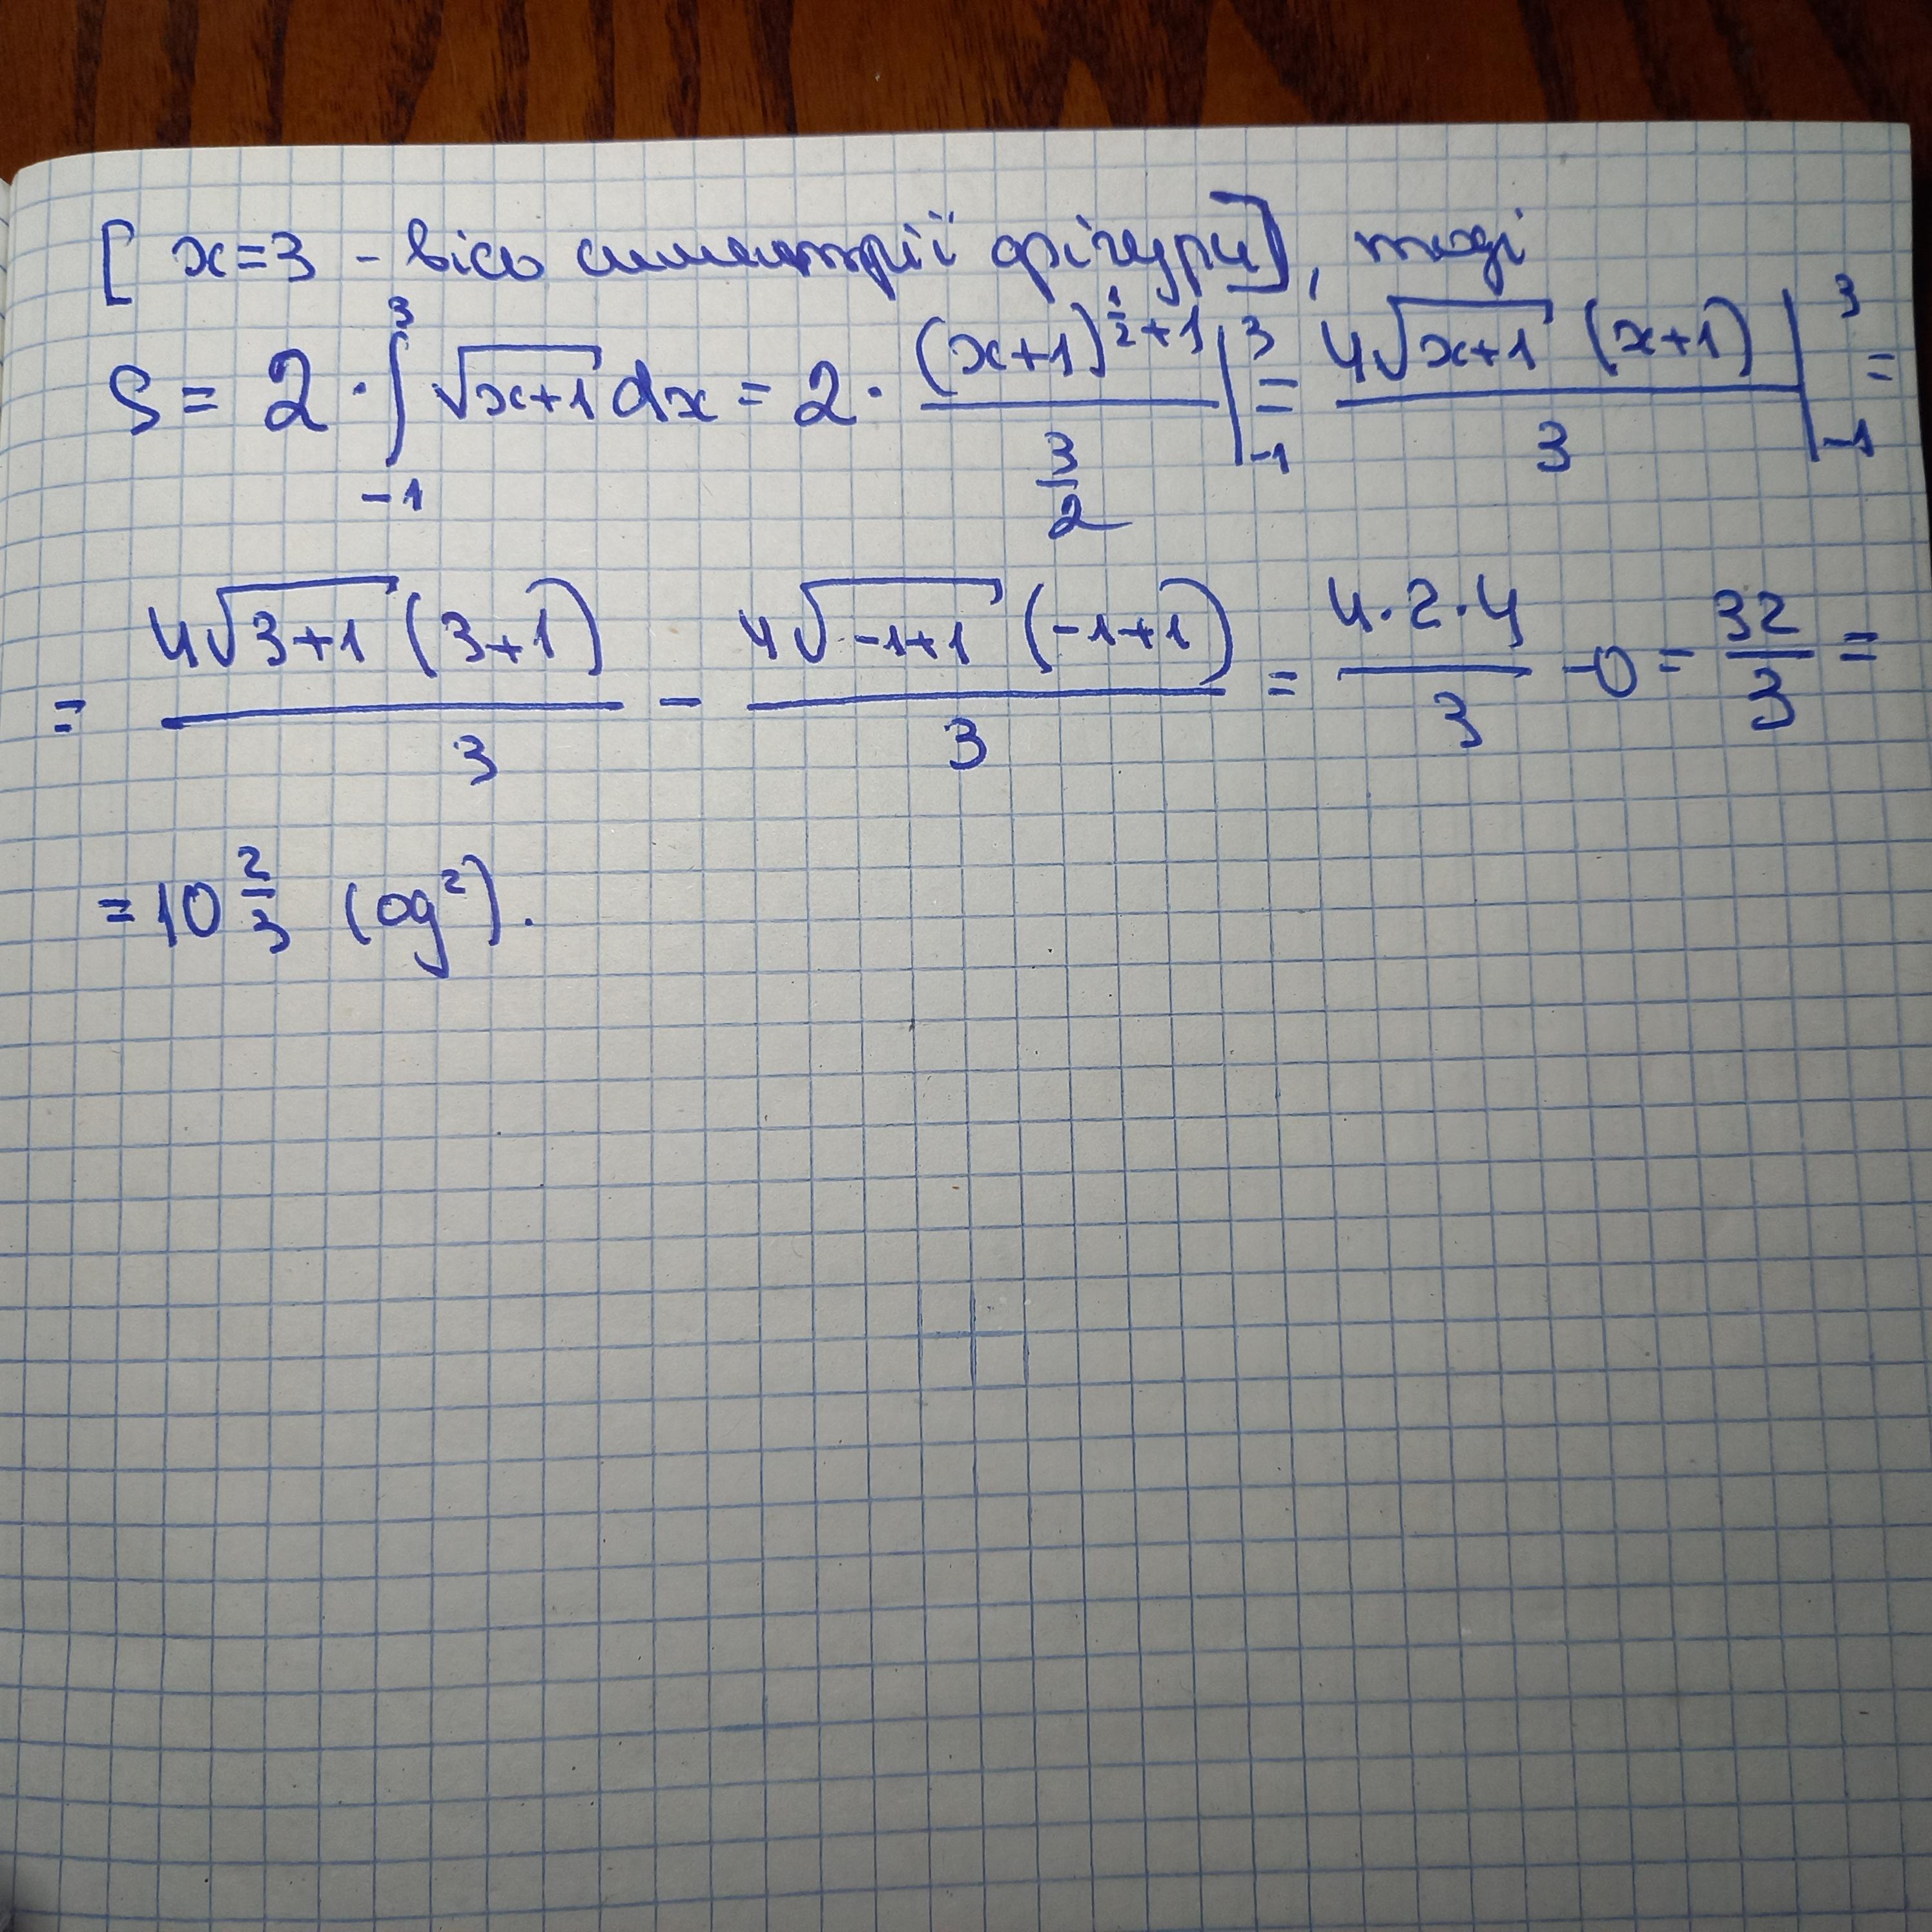 [ x=3 - вісь симетрії фігури], тоді
S = 2 · ∫₋₁³ √(x+1) dx = 2 · (x+1)^(1/2+1) / (3/2) |₋₁³ = 4√(x+1) (x+1) / 3 |₋₁³ =
= 4√(3+1) (3+1) / 3 - 4√(-1+1) (-1+1) / 3 = 4·2·4 / 3 - 0 = 32/3 =
= 10 2/3 (од²).